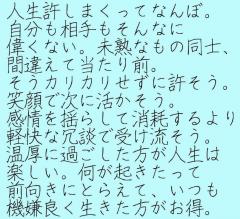 人生許しまくってなんぼ。
自分も相手もそんなに
偉くない。未熟なもの同士、
間違えて当たり前。
そうカリカリせずに許そう。
笑顔で次に活かそう。
感情を揺らして消耗するより
軽快な冗談で受け流そう。
温厚に過ごした方が人生は
楽しい。何が起きたって
前向きにとらえて、いつも
機嫌良く生きた方がお得。